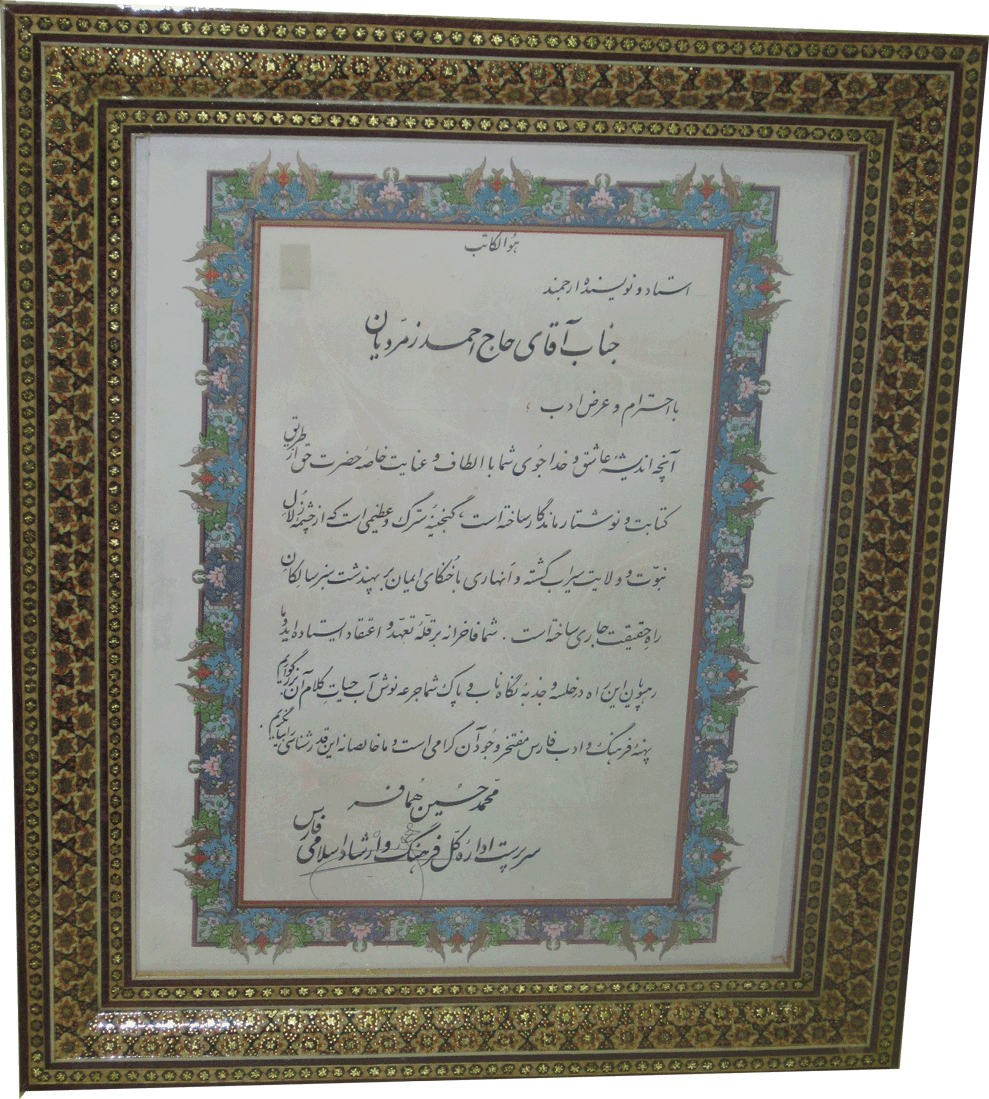 هُوالکاتب
استاد و نویسندهٔ ارجمند
جناب آقای حاج احمد زمرّدیان
با احترام و عرض ادب ؛
آنچه اندیشهٔ عاشق و خداجوی شما با الطاف و عنایت خاصهٔ حضرت حق از طریق
کتابت و نوشتار ماندگار ساخته است، گنجینهٔ سترگ و عظیمی است که از چشمهٔ زُلال
نبوّت و ولایت سیراب گشته و اَنهاری با خُنکای ایمان بر پهندشت سبز سالکانِ
راهِ حقیقت جاری ساخته است . شما فاخرانه بر قلّهٔ تعهّد و اعتقاد ایستاده اید و ما
رهپویان این راه در خلسه و جذبهٔ نگاه ناب و پاک شما جرعه نوش آب حیات کلام آن بزرگواریم
پهنهٔ فرهنگ و ادب فارس مفتخر وجُود آن گرامی است و ما خالصانه این قدرشناسی را می‌گوییم .
محمّد حسین هُمافر
سرپرست ادارهٔ کلّ فرهنگ و ارشاد اسلامی فارس